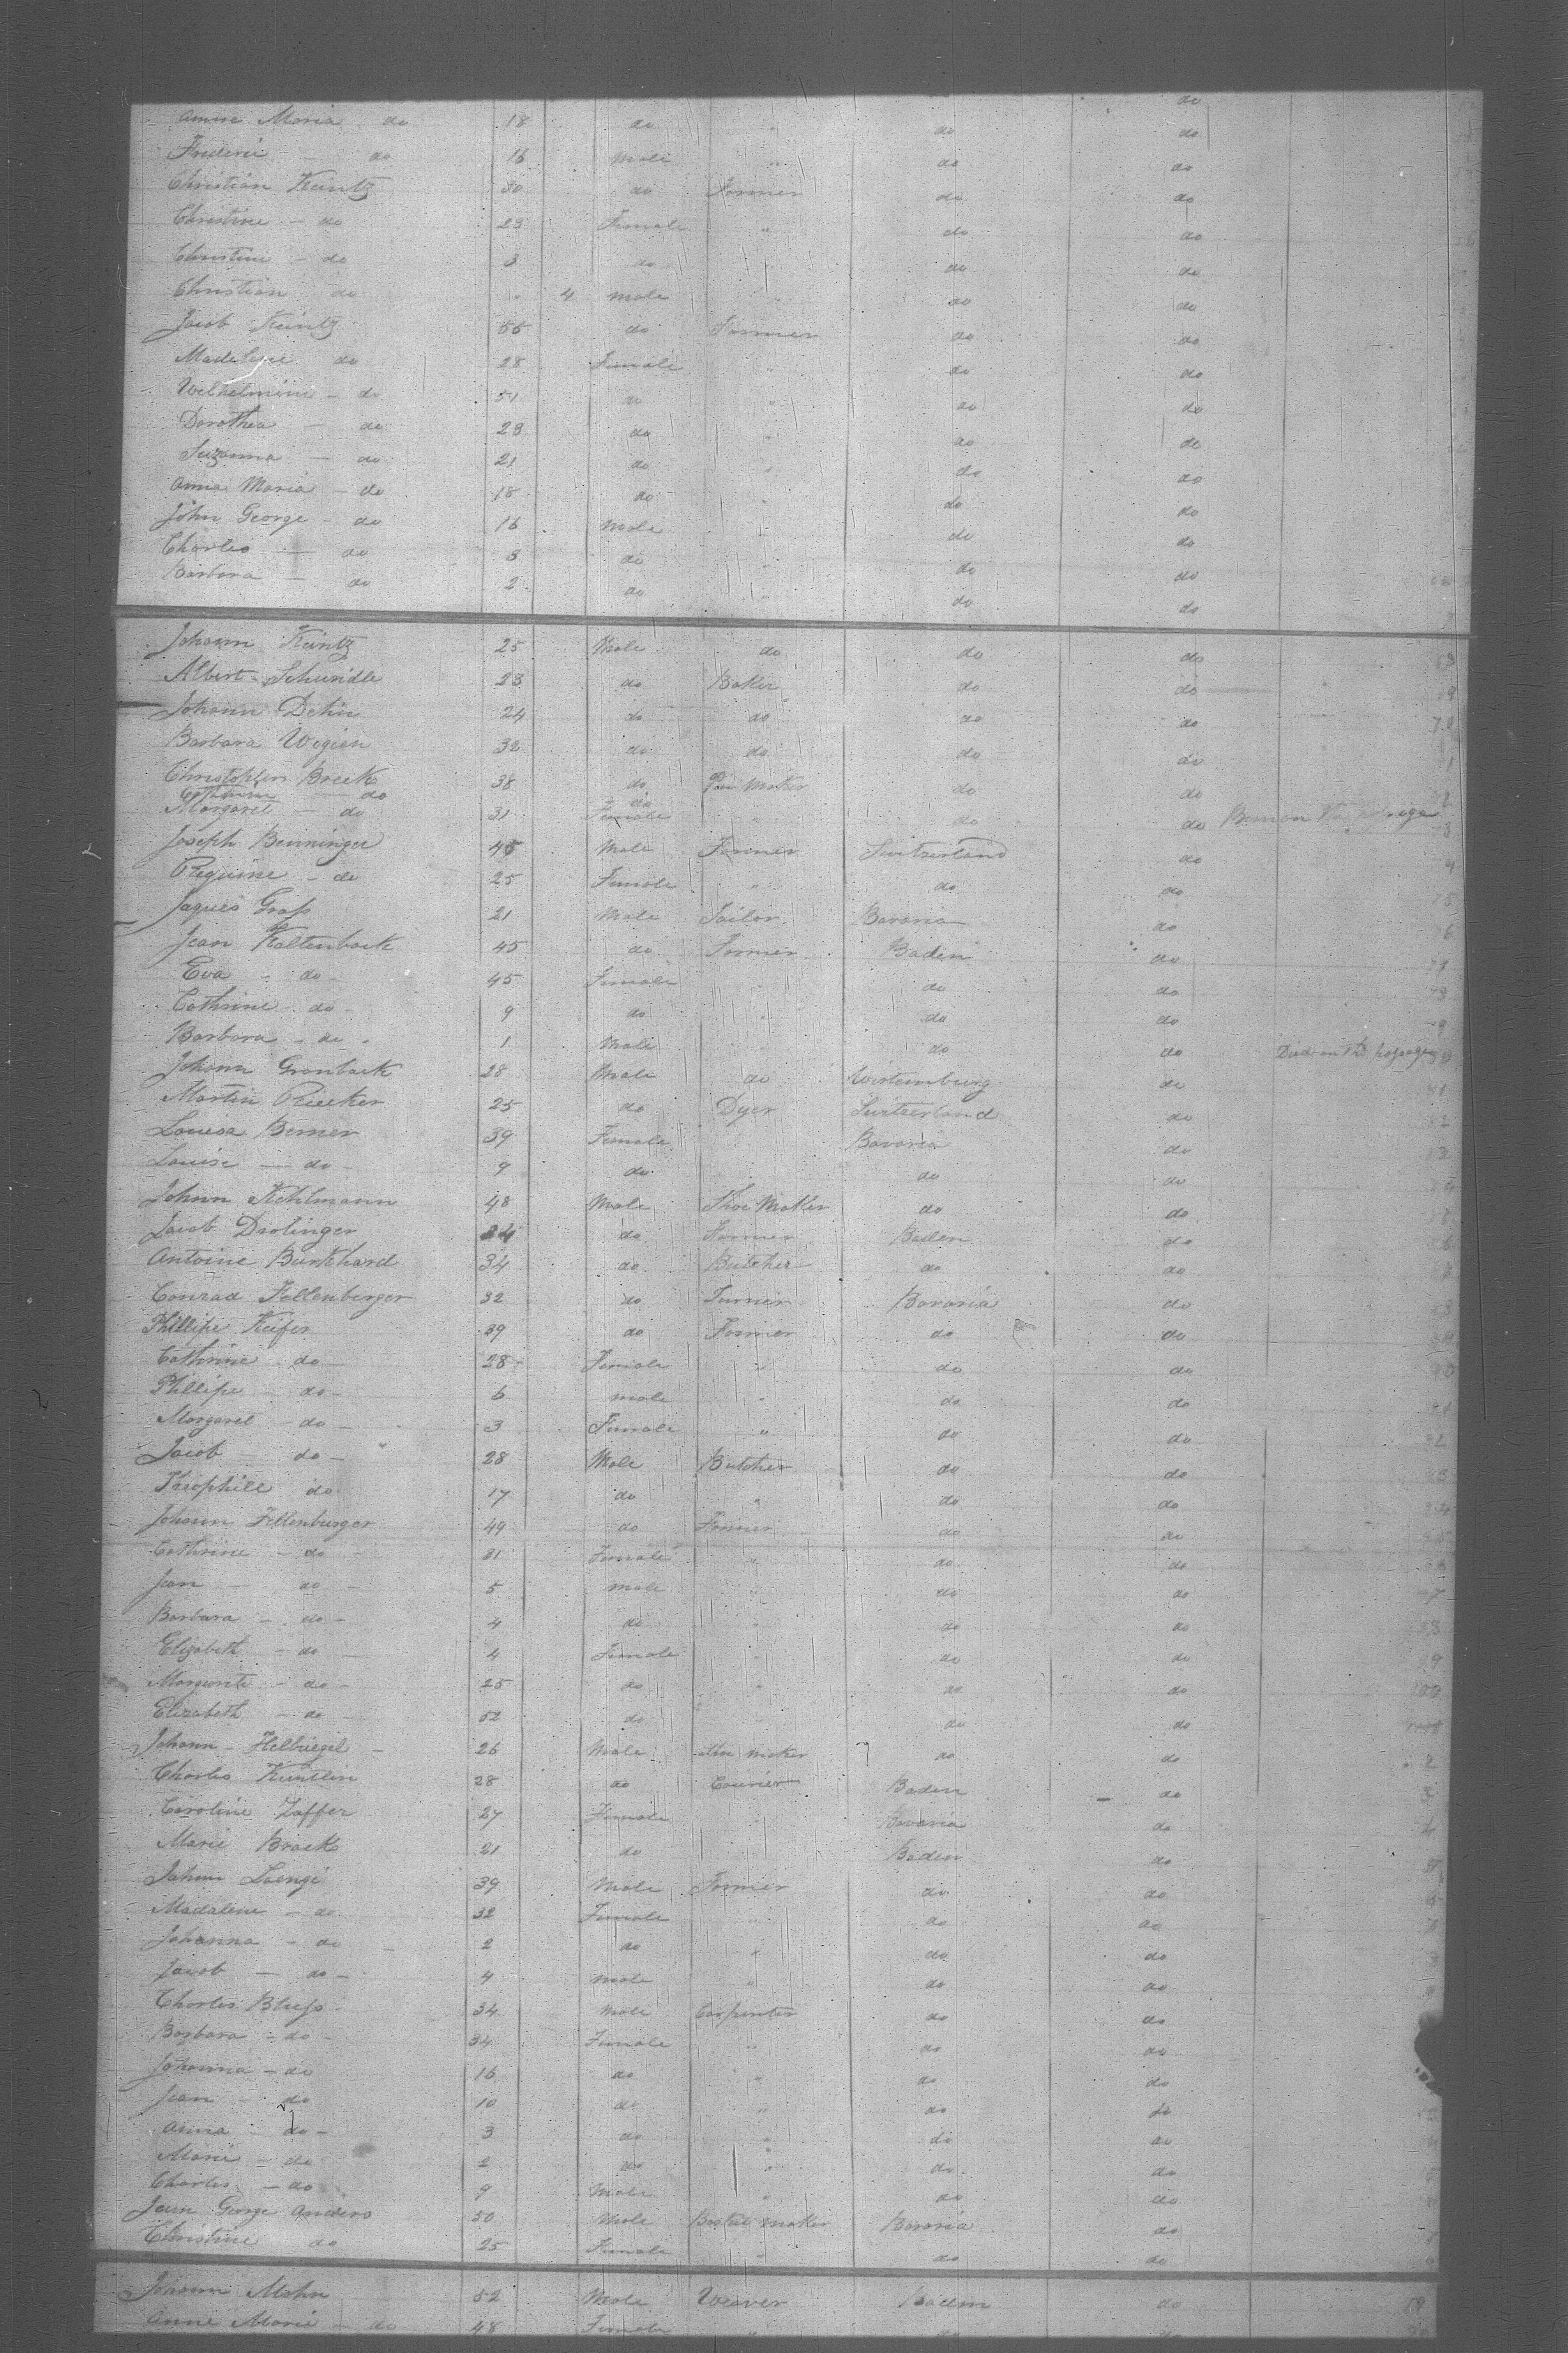 do
Annie Maria do 18 do " do do
Frederic - do 16 Male " do do
Christian Keintz 30 do Farmer do do
Christine - do 23 Female " do do
Christine - do 3 do " do do
Christian do " 4 Male " do do
Jacob Keintz 55 do Farmer do do
Madeleine do 28 Female " do do
Wilhelmine - do 51 do " do do
Dorothea - do 23 do " do do
Suzanna - do 21 do " do do
Anna Maria - do 18 do " do do
John George - do 16 Male " do do
Charles - do 8 do " do do
Barbara - do 2 do " do do
Johann Keintz 25 Male do do do
Albert Schuridle 23 do Baker do do
Johann Dehn 24 do do do do
Barbara Wegien 32 do do do do 1
Christopher Breek 38 do Maker do do
Cathrine do do
Margaret - do 31 Female " do do Born on the passage
Joseph Benninger 45 Male Farmer Switzerland do 4
Reguine - do 25 Female " do do
Jaques Grass 21 Male Tailor Bavaria do 6
Jean Kaltenback 45 do Farmer Baden do
Eva - do - 45 Female " do do
Cathrine - do - 9 do " do do
Barbara - do - 1 Male " do do Died on the passage
Johann Gronback 28 Male do Wirtemburg do
Martin Riecker 25 do Dyer Switzerland do
Louisa Berner 39 Female Bavaria do
Louise - do - 9 do do do
Johnn Kehlmann 48 Male Shoe Maker do do
Jacob Drolinger 24 do Farmer Baden do
Antoine Burkhard 34 do Butcher do do
Conrad Fellenberger 32 do Turner Bavaria do
Phillipe Keifer 39 do Farmer do do
Cathrine do - 28 Female " do do
Phillipe - do - 6 male " do do
Margaret - do - 3 Female " do do
Jacob - do - 28 Male Butcher do do
Theophill do 17 do " do do
Johann Fellenburger 49 do Farmer do do
Cathrine - do - 31 Female " do do
Jean - do - 5 male " do do
Barbara - do - 4 do " do do
Elizabeth - do - 4 Female " do do
Marguerite - do - 25 do " do do 100
Elizabeth - do - 52 do do do
Johann - Helbriegel - 26 Male Shoe maker do do 2
Charles Kuntlin 28 do Courier Baden do 3
Caroline Zaffer 27 Female " Bavaria do 4
Marie Brack 21 do Baden do
Johann Laenge 39 Male Farmer do do
Madalene - do 32 Female " do do
Johanna - do - 2 do " do do
Jacob - do - 4 male " do do
Charles Bluss 34 Male Carpenter do do
Barbara - do - 34 Female " do do
Johanna - do 16 do " do do
Jean - do 10 do " do do
Anna - do - 3 do " do do
Marie - do 2 do " do do
Charles - do 9 Male " do do
Jean George Anders 50 Male Basket maker Bavaria do
Christine do 25 Female " do do
Johann Mohn 52 Male Weaver Baden do
Anne Marie - do 48 Female " do do